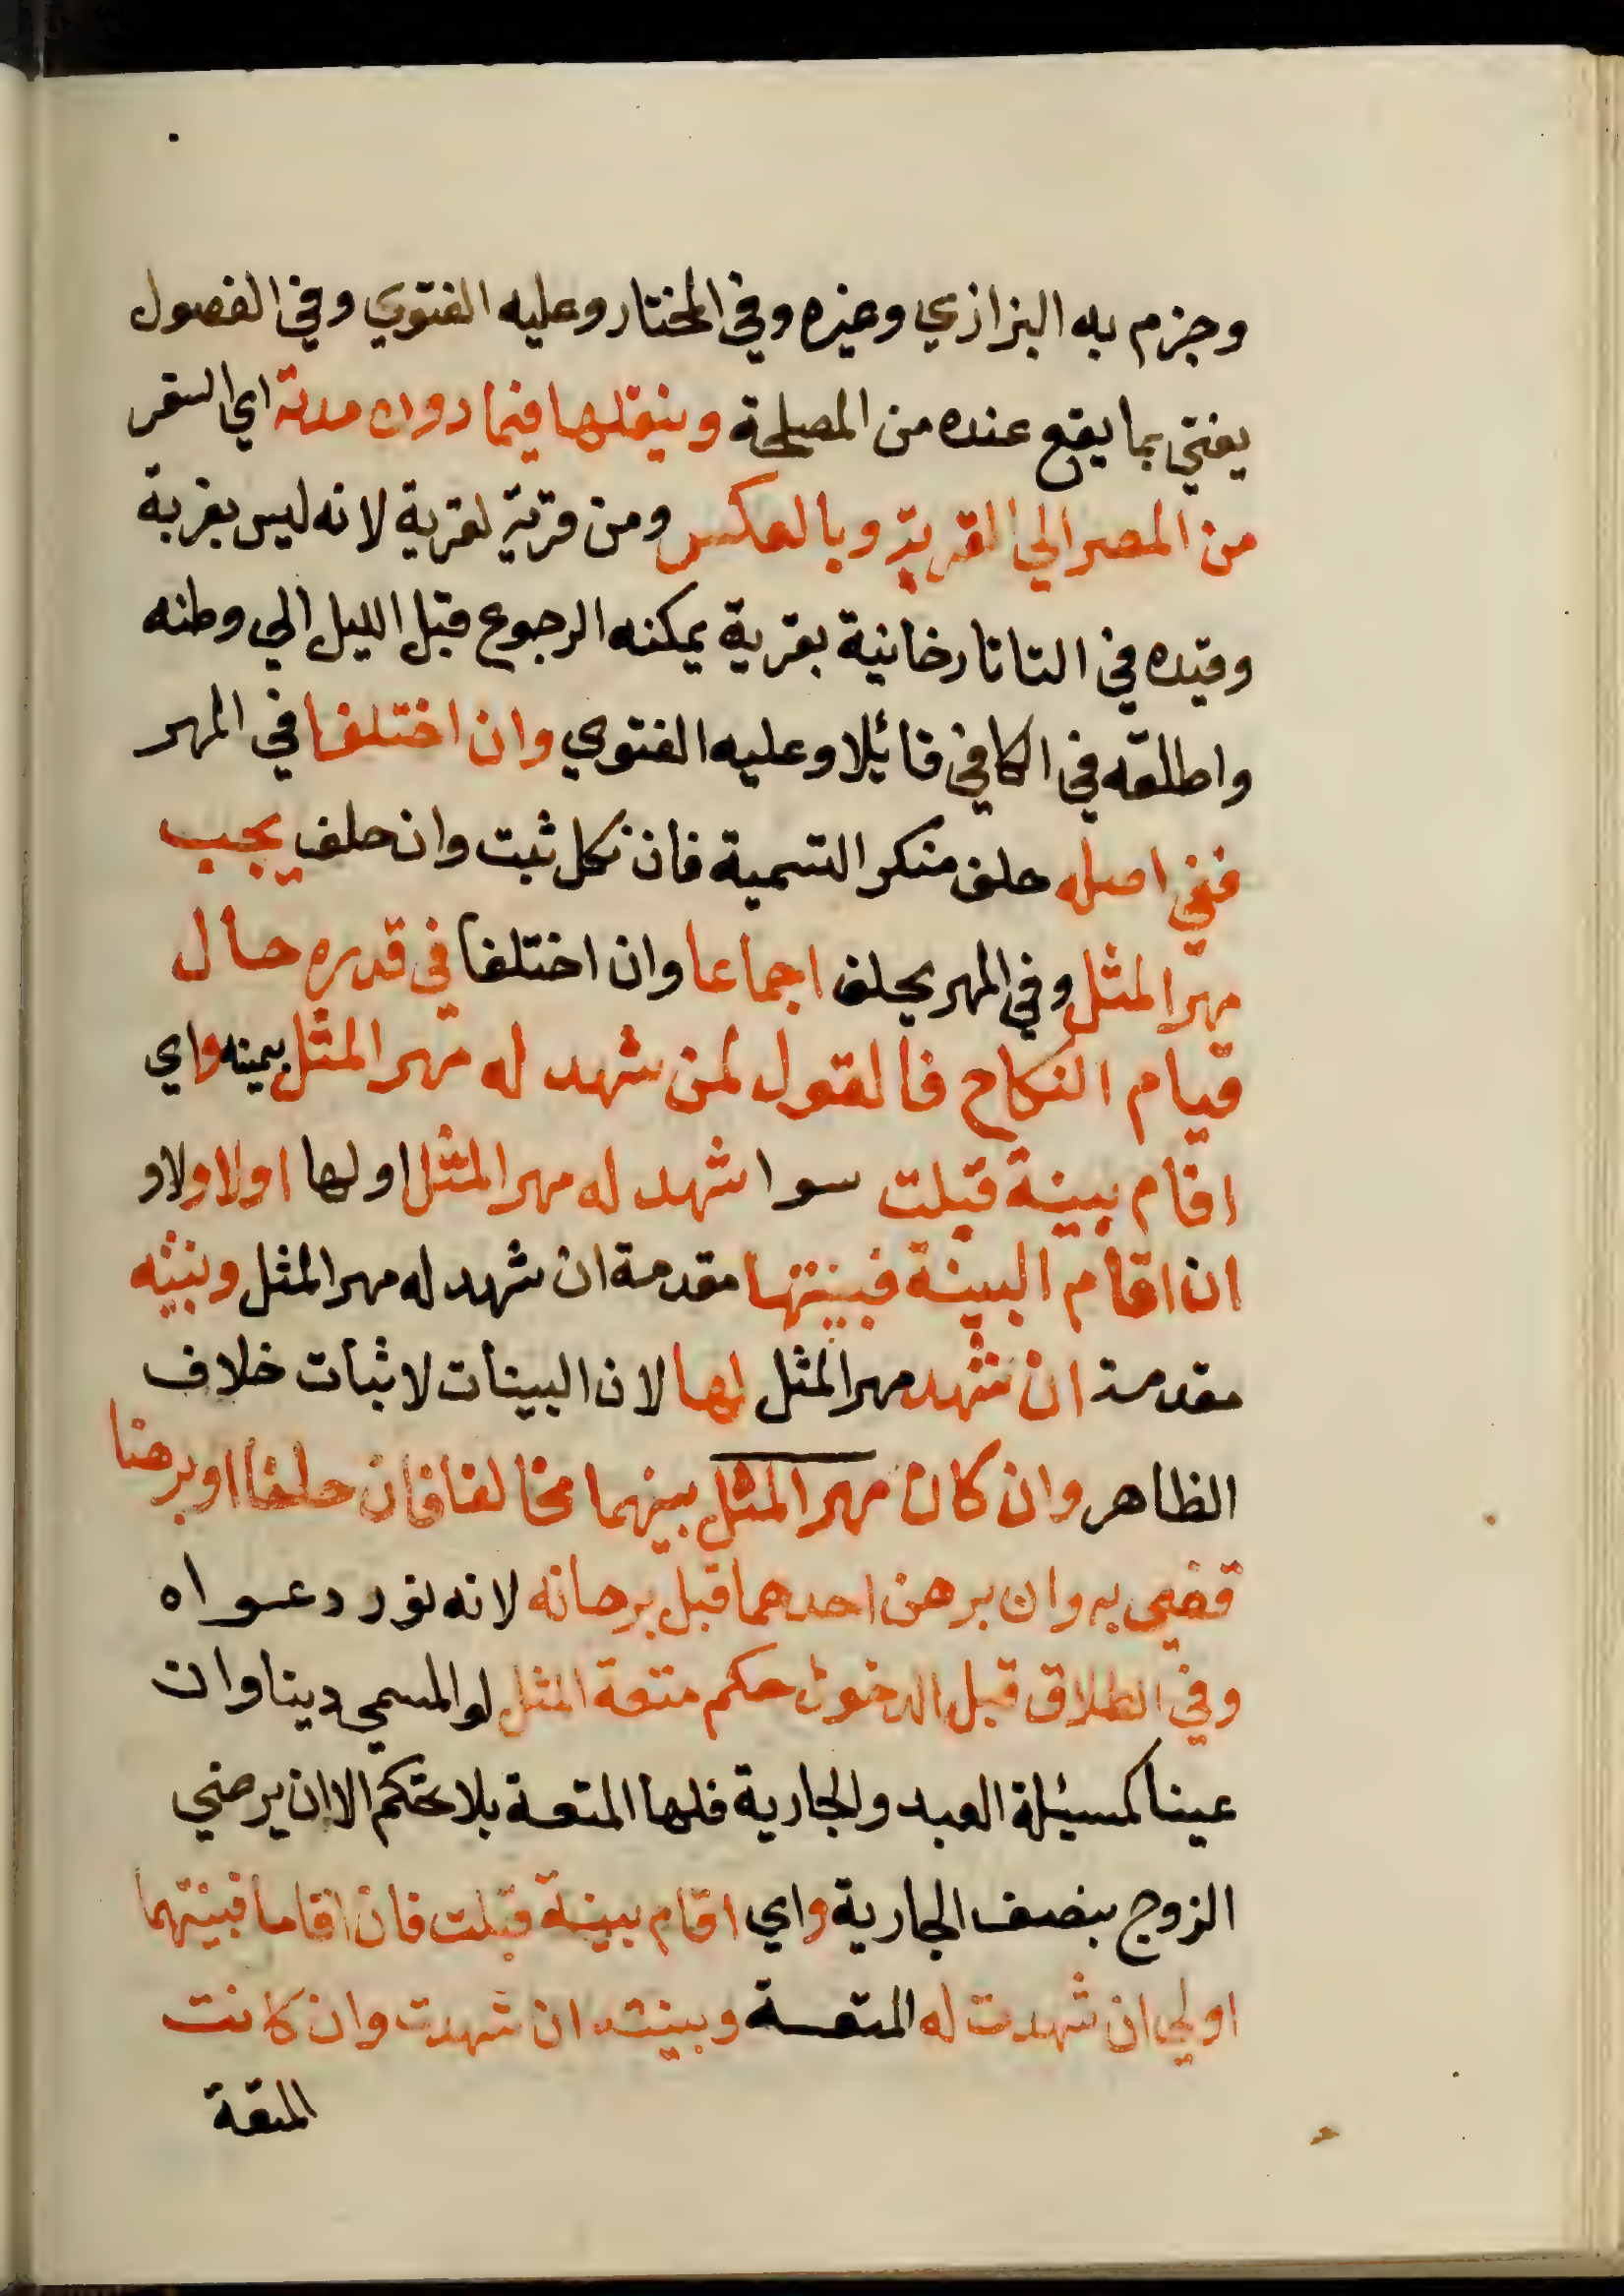 وجزم به البزازي وغيره وفي المختار وعليه الفتوي وفي الفصول
يفتي بما يقع عنده من المصلحة وينقلها فيما دون مدته اي السفر
من المصر الي القرية وبالعكس ومن قرية لقرية لانه ليس بغربة
وقيده في التاتارخانية بقرية يمكنه الرجوع قبل الليل الي وطنه
واطلقه في الكافي قائلا وعليه الفتوي وان اختلفا في المهر
ففي اصله حلف منكر التسمية فان نكل ثبت وان حلف يجب
مهر المثل وفي المهر يحلف اجماعا وان اختلفا في قدره حال
قيام النكاح فالقول لمن شهد له مهر المثل بيمينه واي
اقام بينة قبلت سوا شهد له مهر المثل او لها اولا ولا و
ان اقام البينة فبينتها مقدمة ان شهد له مهر المثل وبنيثه
مقدمة ان شهد مهر المثل لها لان البينات لاثبات خلاف
الظاهر وان كان مهر المثل بينهما مخالفا فان حلفا او برهنا
قضي به وان برهن احدهما قبل برهانه لانه نور دعواه
وفي الطلاق قبل الدخول حكم متعة المثل لو المسمي دينا وان
عينا كمسئلة العبد والجارية فلها المتعة بلا تحكم الا ان يرضي
الزوج بنصف الجارية واي اقام بينة قبلت فان اقاما فبينتهما
اولي ان شهدت له المتعة وبينته ان شهدت وان كانت
المتعة